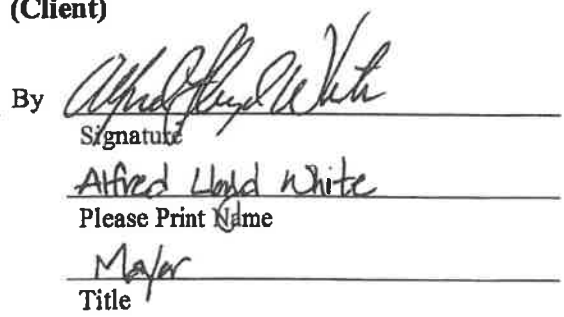 (Client)
By Alfred Lloyd White
Signature
Alfred Lloyd White
Please Print Name
Mayor
Title